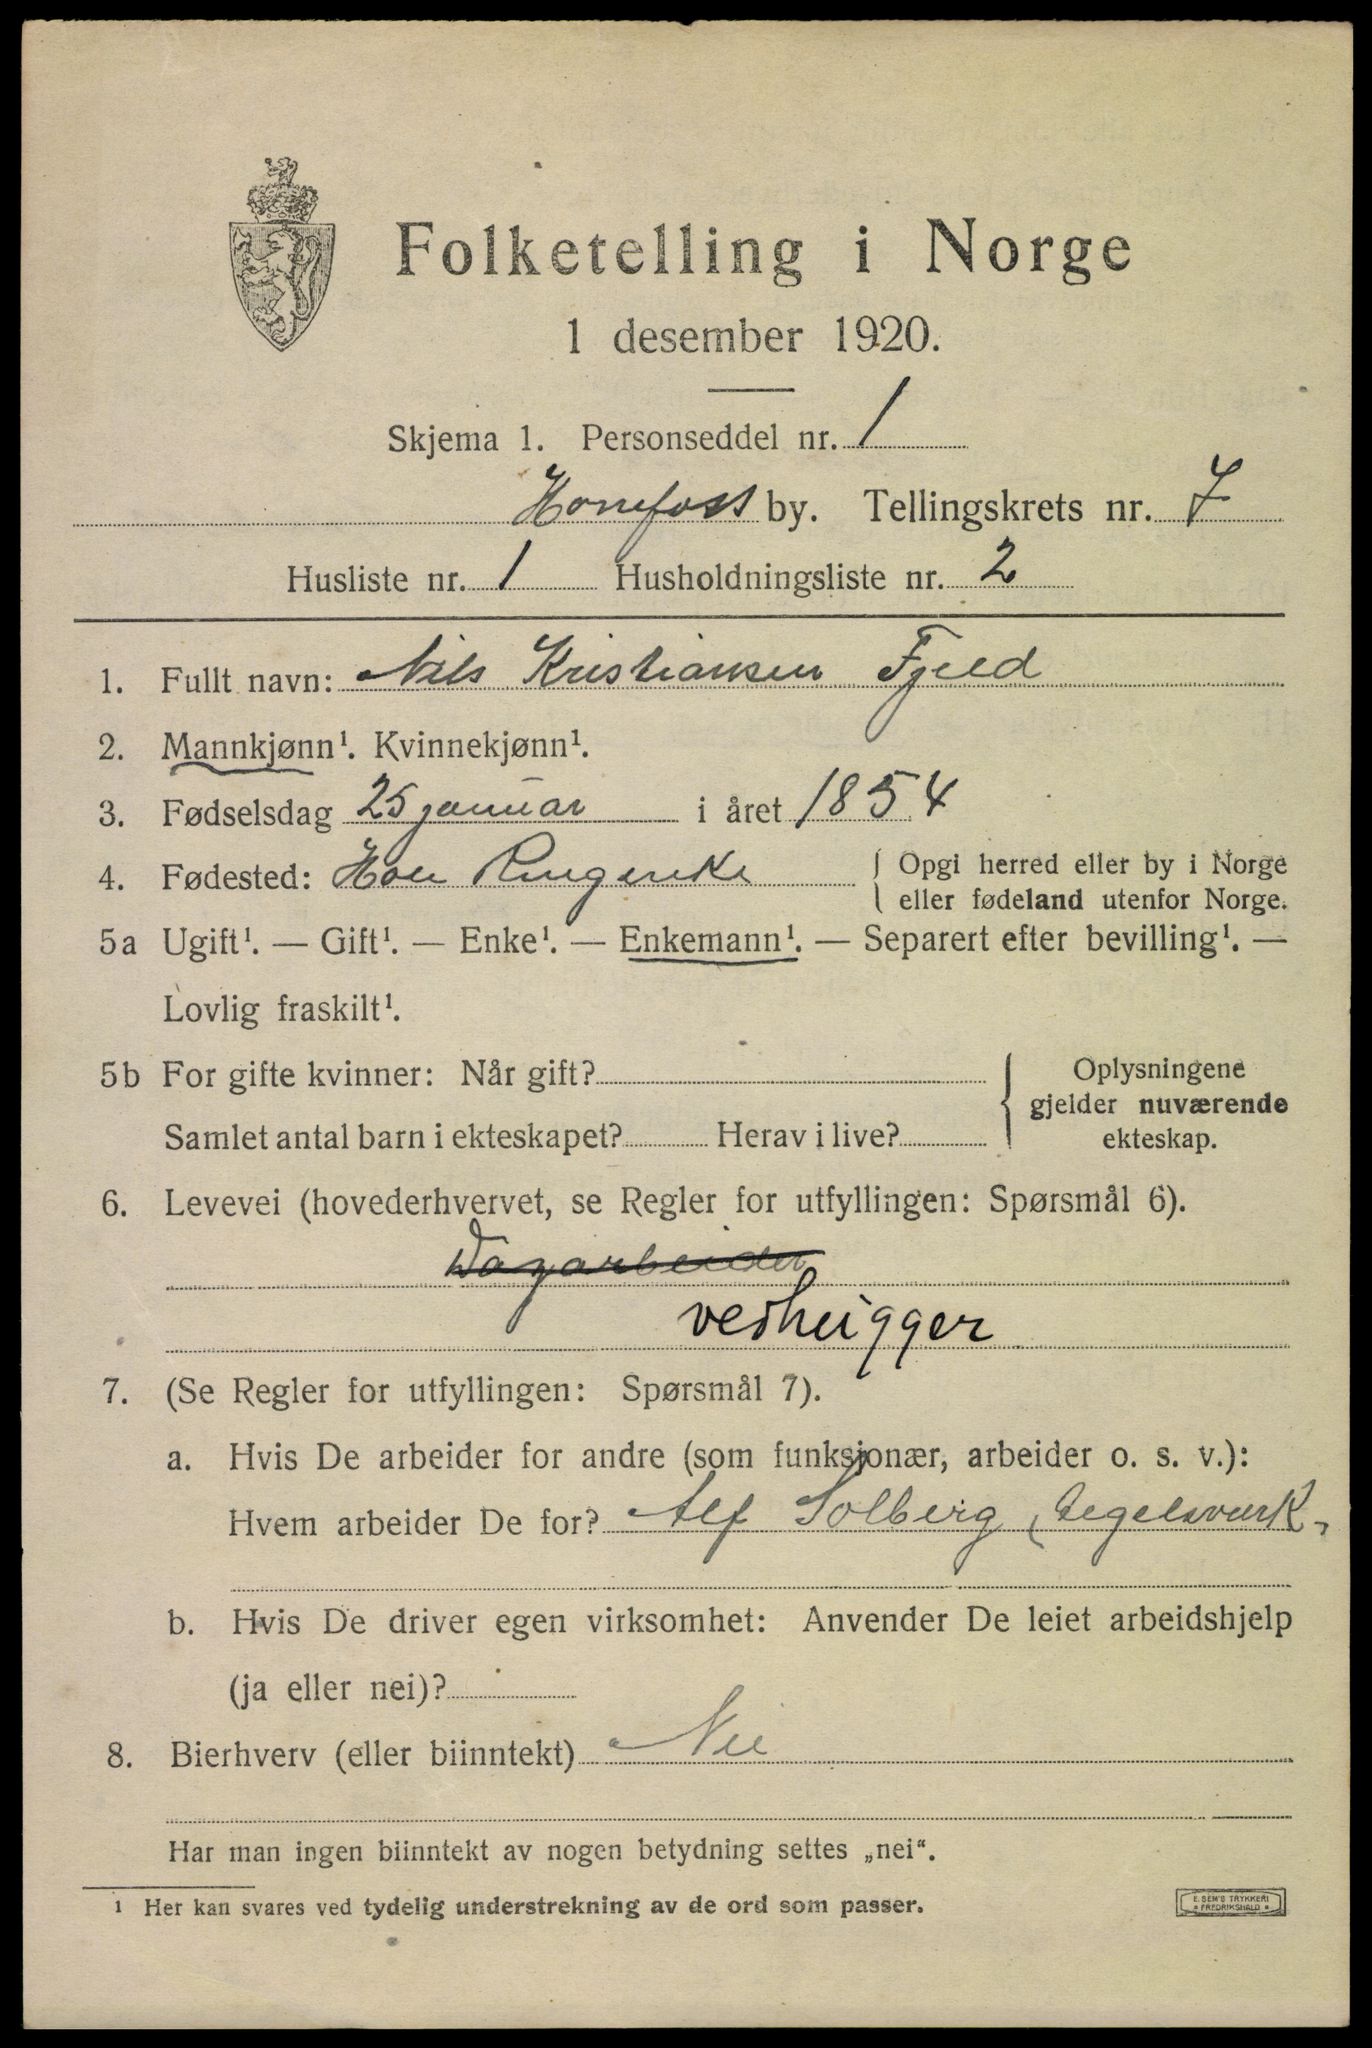 Folketelling i Norge
1 desember 1920.
Skjema 1. Personseddel nr. 1
Hønefoss by. Tellingskrets nr. 7
Husliste nr. 1 Husholdningsliste nr. 2
1. Fullt navn: Nils Kristiansen Fjeld
2. Mannkjønn¹. Kvinnekjønn¹.
3. Fødselsdag 25 januar i året 1854
4. Fødested: Hole Ringerike { Opgi herred eller by i Norge
eller fødeland utenfor Norge.
5a Ugift¹. — Gift¹. — Enke¹. — Enkemann¹. — Separert efter bevilling¹. —
Lovlig fraskilt¹.
5b For gifte kvinner: Når gift? { Oplysningene
gjelder nuværende
Samlet antal barn i ekteskapet? Herav i live? ekteskap.
6. Levevei (hovederhvervet, se Regler for utfyllingen: Spørsmål 6).
Dagarbeider
vedhugger
7. (Se Regler for utfyllingen: Spørsmål 7).
a. Hvis De arbeider for andre (som funksjonær, arbeider o. s. v.):
Hvem arbeider De for? Alf Solberg (Tegelsverk,
b. Hvis De driver egen virksomhet: Anvender De leiet arbeidshjelp
(ja eller nei)?
8. Bierhverv (eller biinntekt) Nei
Har man ingen biinntekt av nogen betydning settes „nei“.
¹ Her kan svares ved tydelig understrekning av de ord som passer.
E. SEM'S TRYKKERI
* FREDRIKSHALD *